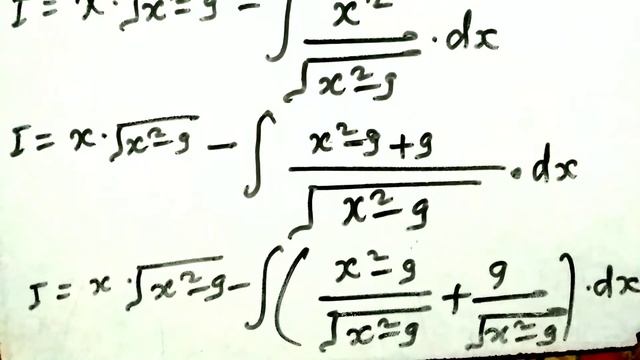 I = x·√(x²-9) - ∫ x²/√(x²-9) · dx
I = x·√(x²-9) - ∫ (x²-9+9)/√(x²-9) · dx
I = x·√(x²-9) - ∫ ((x²-9)/√(x²-9) + 9/√(x²-9)) · dx